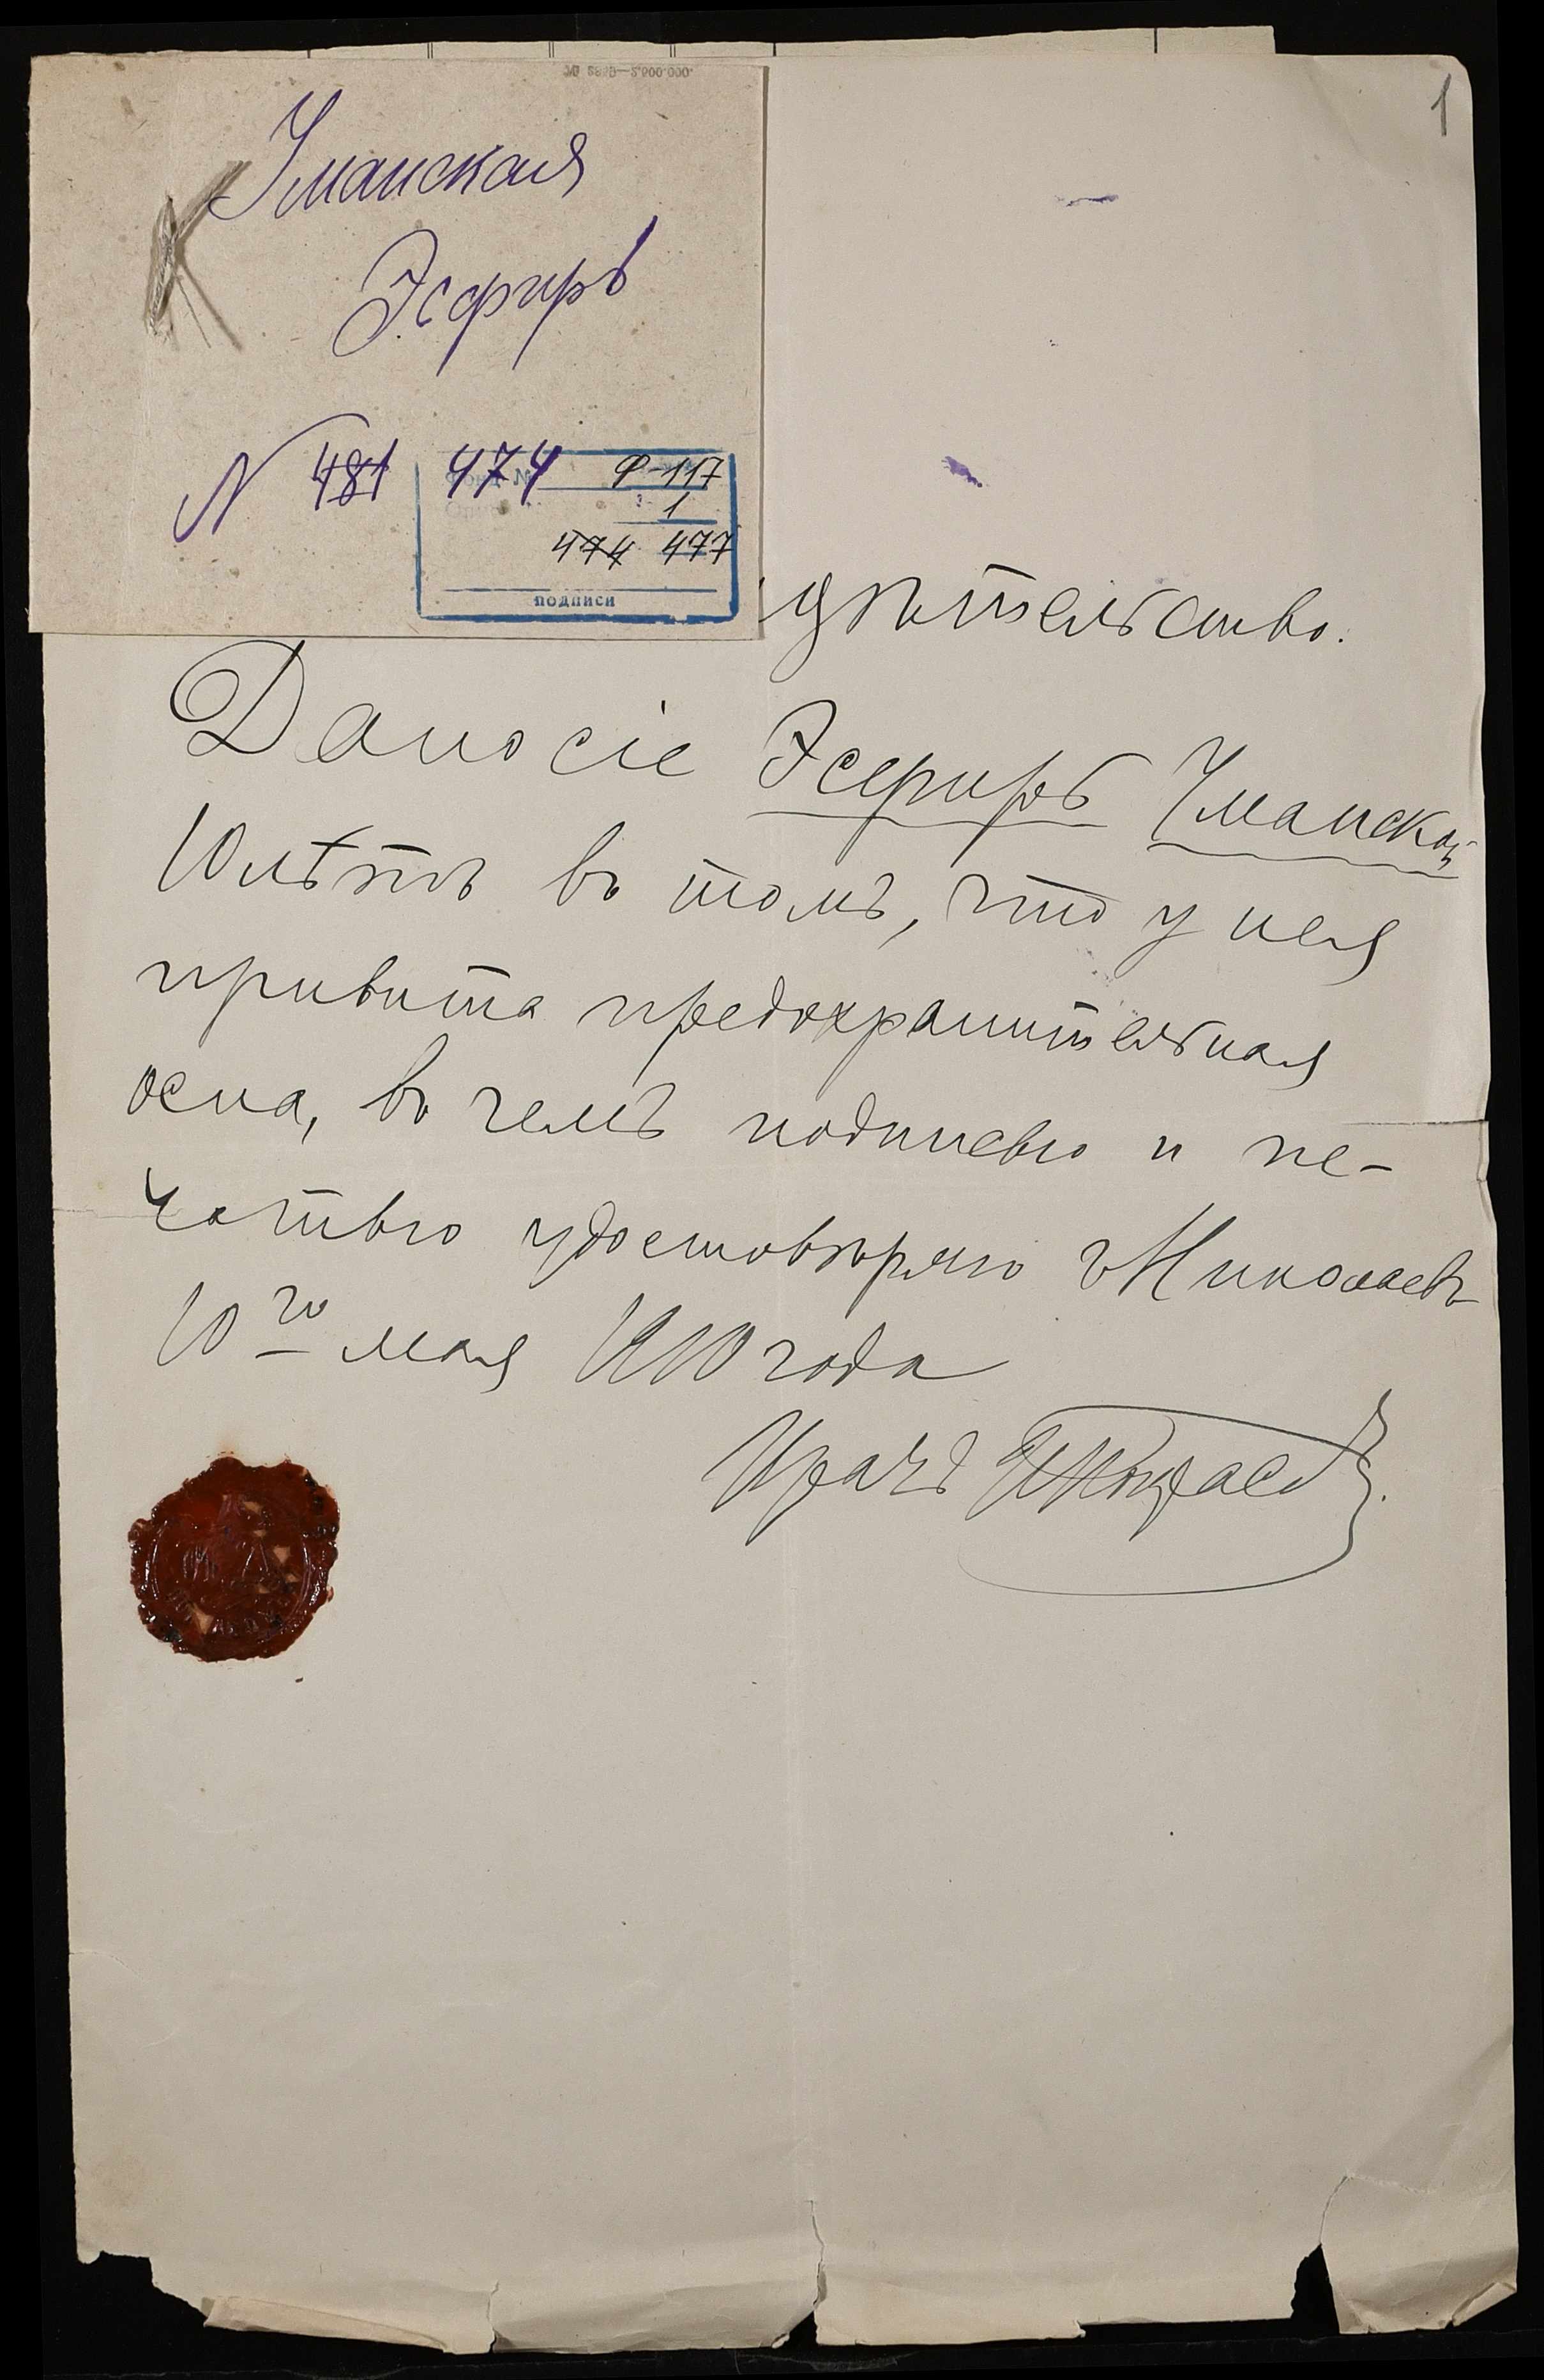 1
Уманская
Эсфирь
N 481 474
Ф-117
1
474 477
подписи
дѣтельство.
Дано сіе Эсфирь Уманской
10 лѣтъ въ томъ, что у нея
привита предохранительная
оспа, въ чемъ подписью и пе-
чатью удостовѣряю г Николаевъ
10го мая 1910 года
Врачъ